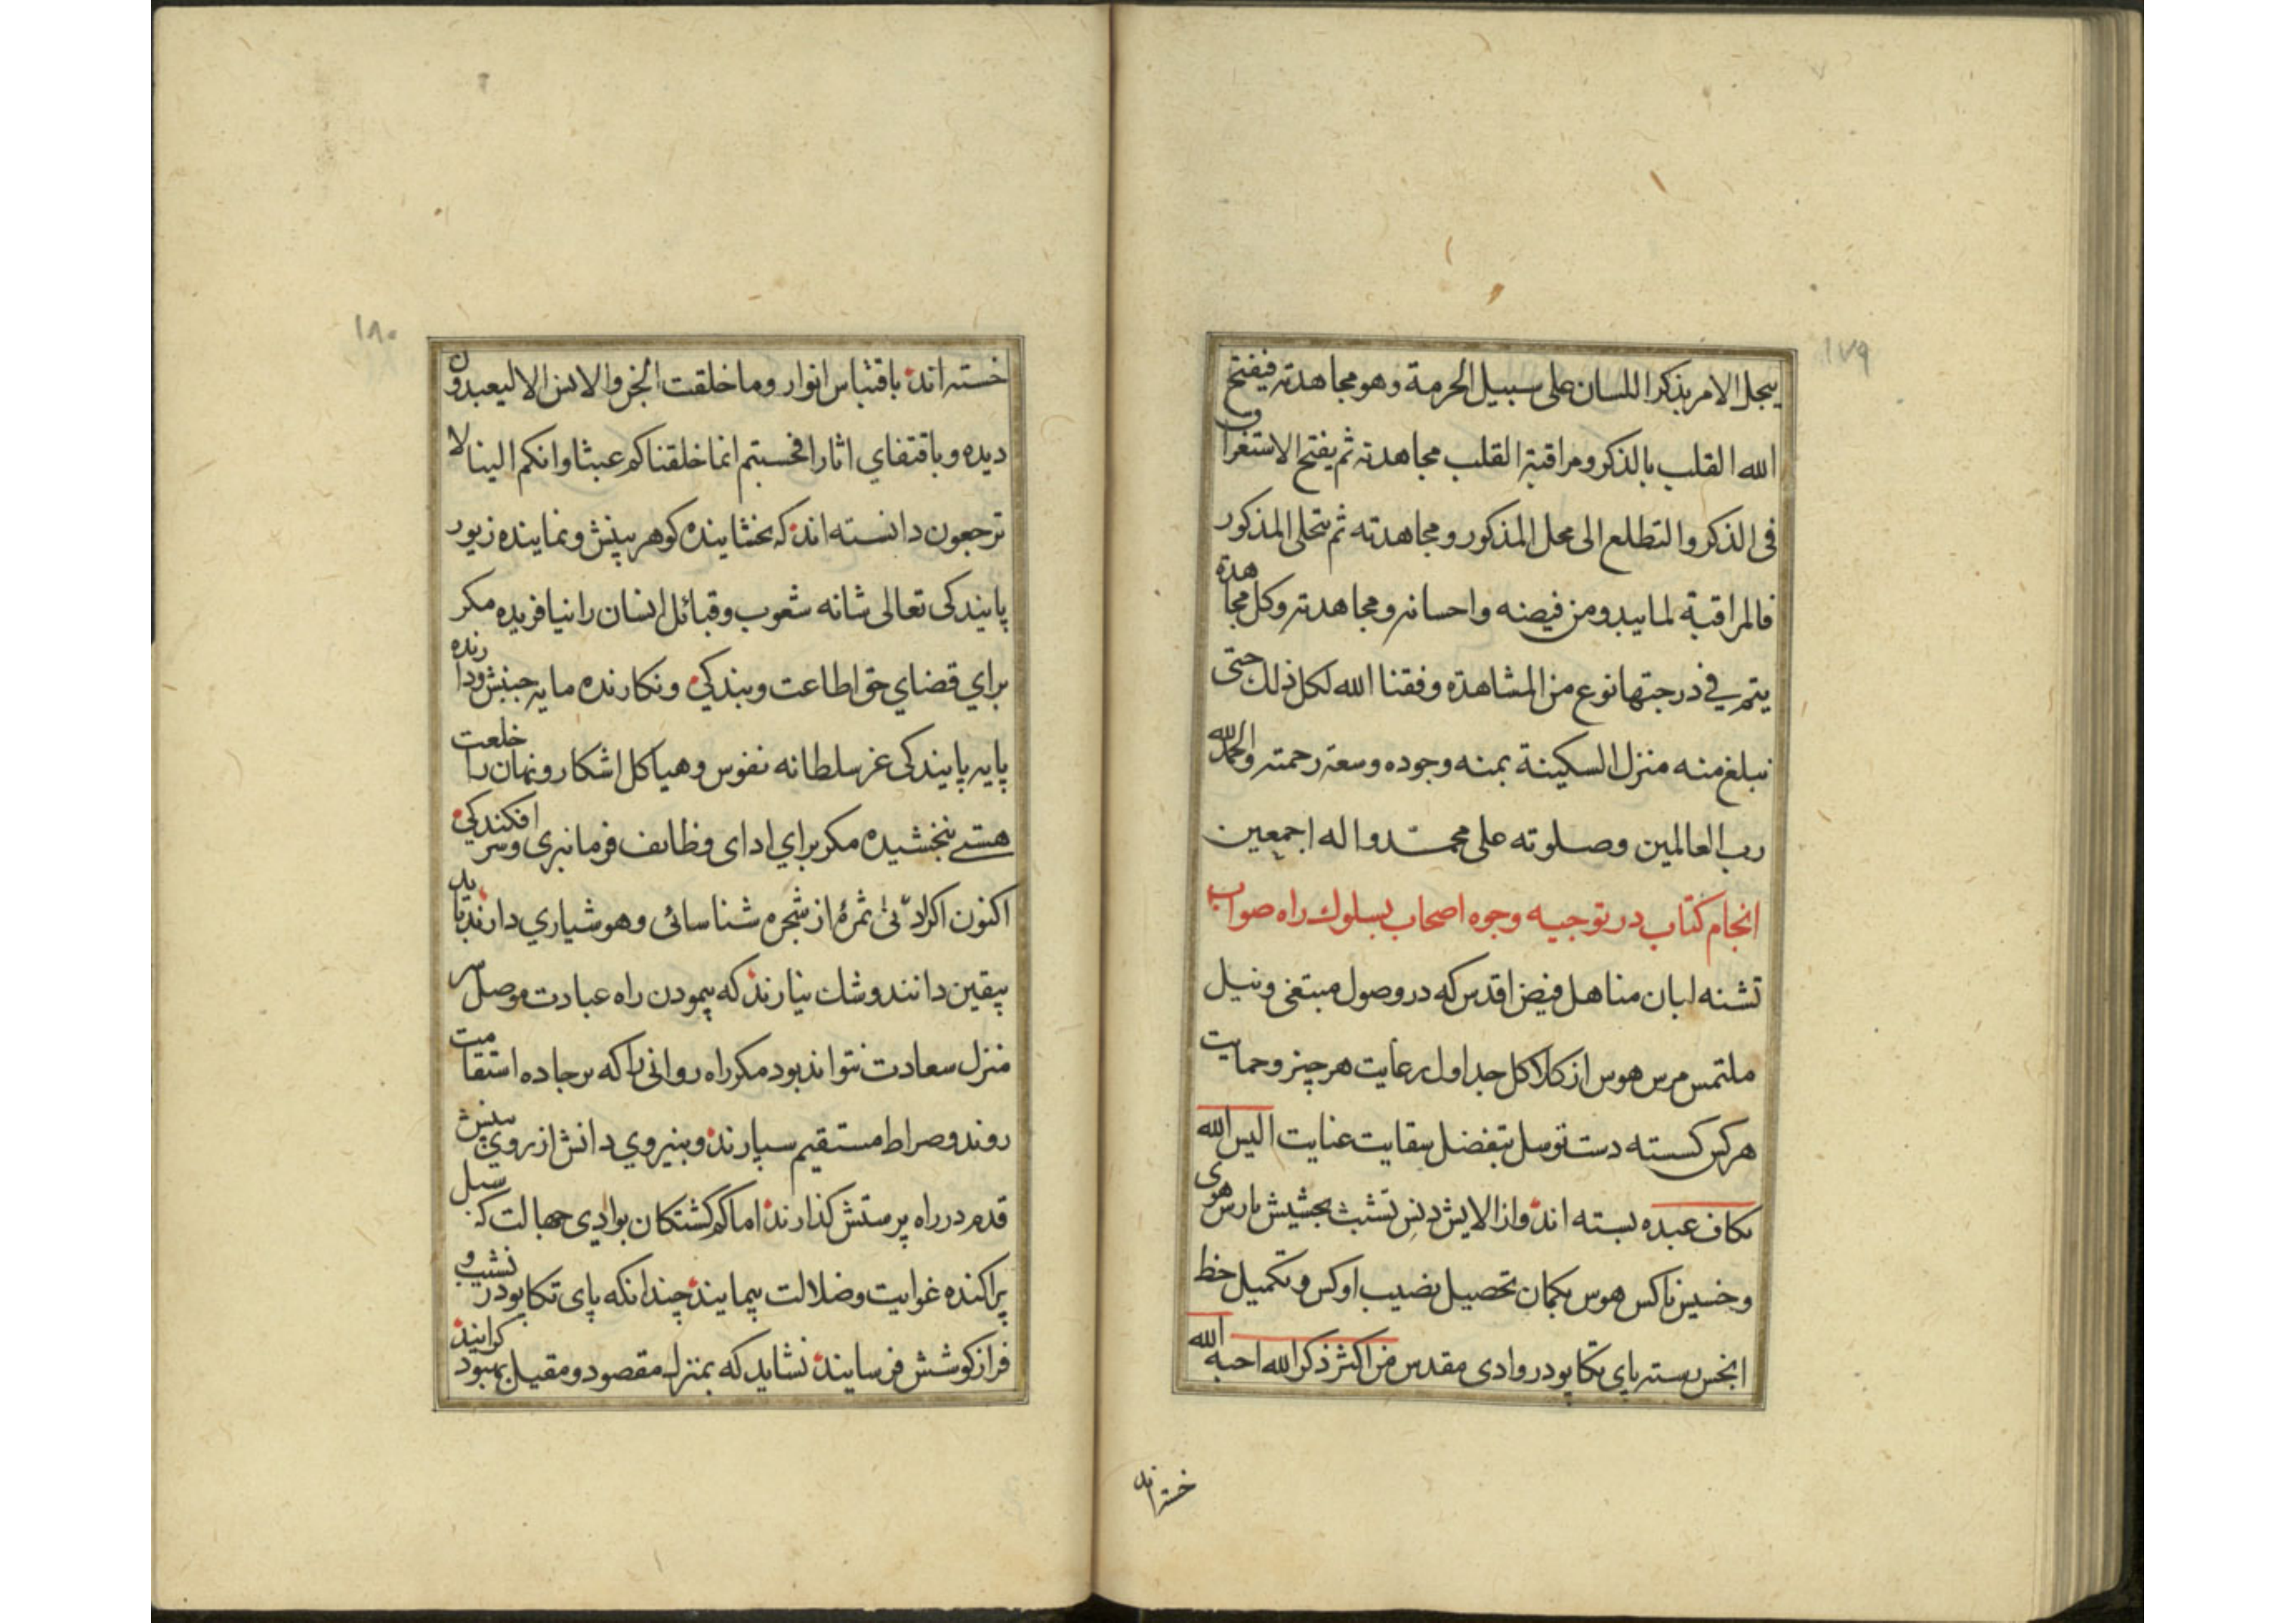 ١٧٩
يتجلى الامر بذكر اللسان على سبيل الحرمة وهو مجاهدته فيفتح
الله القلب بالذكر ومراقبة القلب مجاهدته ثم يفتح الاستغراق
فى الذكر والتطلع الى محل المذكور ومجاهدته ثم يتحلى المذكور
فالمراقبة لما يبدو من فيضه واحسانه ومجاهدته وكل مجاهدة
يتم في درجتها نوع من المشاهدة وفقنا الله لكل ذلك حتى
نبلغ منه منزل السكينة بمنه وجوده وسعة رحمته والحمد لله
رب العالمين وصلوته على محمد واله اجمعين
انجام كتاب در توجيه وجوه اصحاب بسلوك راه صواب
تشنه لبان مناهل فيض اقدس كه در وصول مبتغى ونيل
ملتمس مرس هوس از كلاكل جداول رعايت هر چيز وحمايت
هر كس كسسته دست توسل بتفضل سقايت عنايت اليس الله
بكاف عبده بسته اند واز الايش دنس تشبث بحشيش بارس هوى
وخسيس ناكس هوس بكمان تحصيل نصيب اوكس وتكميل حظ
ابخس رسته پاى تكاپو در وادى مقدس من اكثر ذكر الله احبه الله
خسته اند
١٨٠
خسته اند باقتباس انوار وما خلقت الجن والانس الا ليعبدون
ديده وباقتفاي اثار افحسبتم انما خلقناكم عبثا وانكم الينا لا
ترجعون دانسته اند كه بخشاينده كوهر بينش ونماينده زيور
پايندكى تعالى شانه شعوب وقبائل انسان را نيافريده مكر
براي قضاي حق اطاعت وبندكي ونكارنده مايه جنبش ودارنده
پايه پايندكى عز سلطانه نفوس وهياكل اشكار ونهان را خلعت
هستے نبخشيده مكر براي اداى وظايف فرمانبرى وسر افكندكي
اكنون اكر ادنى ثمرۀ از شجره شناسائى وهوشياري دارند بايد
بيقين دانند وشك نيارند كه پيمودن راه عبادت موصل سر
منزل سعادت نتواند بود مكر راه روانى را كه بر جاده استقامت
روند وصراط مستقيم سپارند وبنيروي دانش از روي بينش
قدم در راه پرستش كذارند اما كم كشتكان بوادي جهالت كه سبل
پراكنده غوايت وضلالت پيمايند چندانكه پاى تكاپو در نشيب و
فراز كوشش فرسايند نشايد كه بمنزل مقصود ومقيل بهبود كرايند